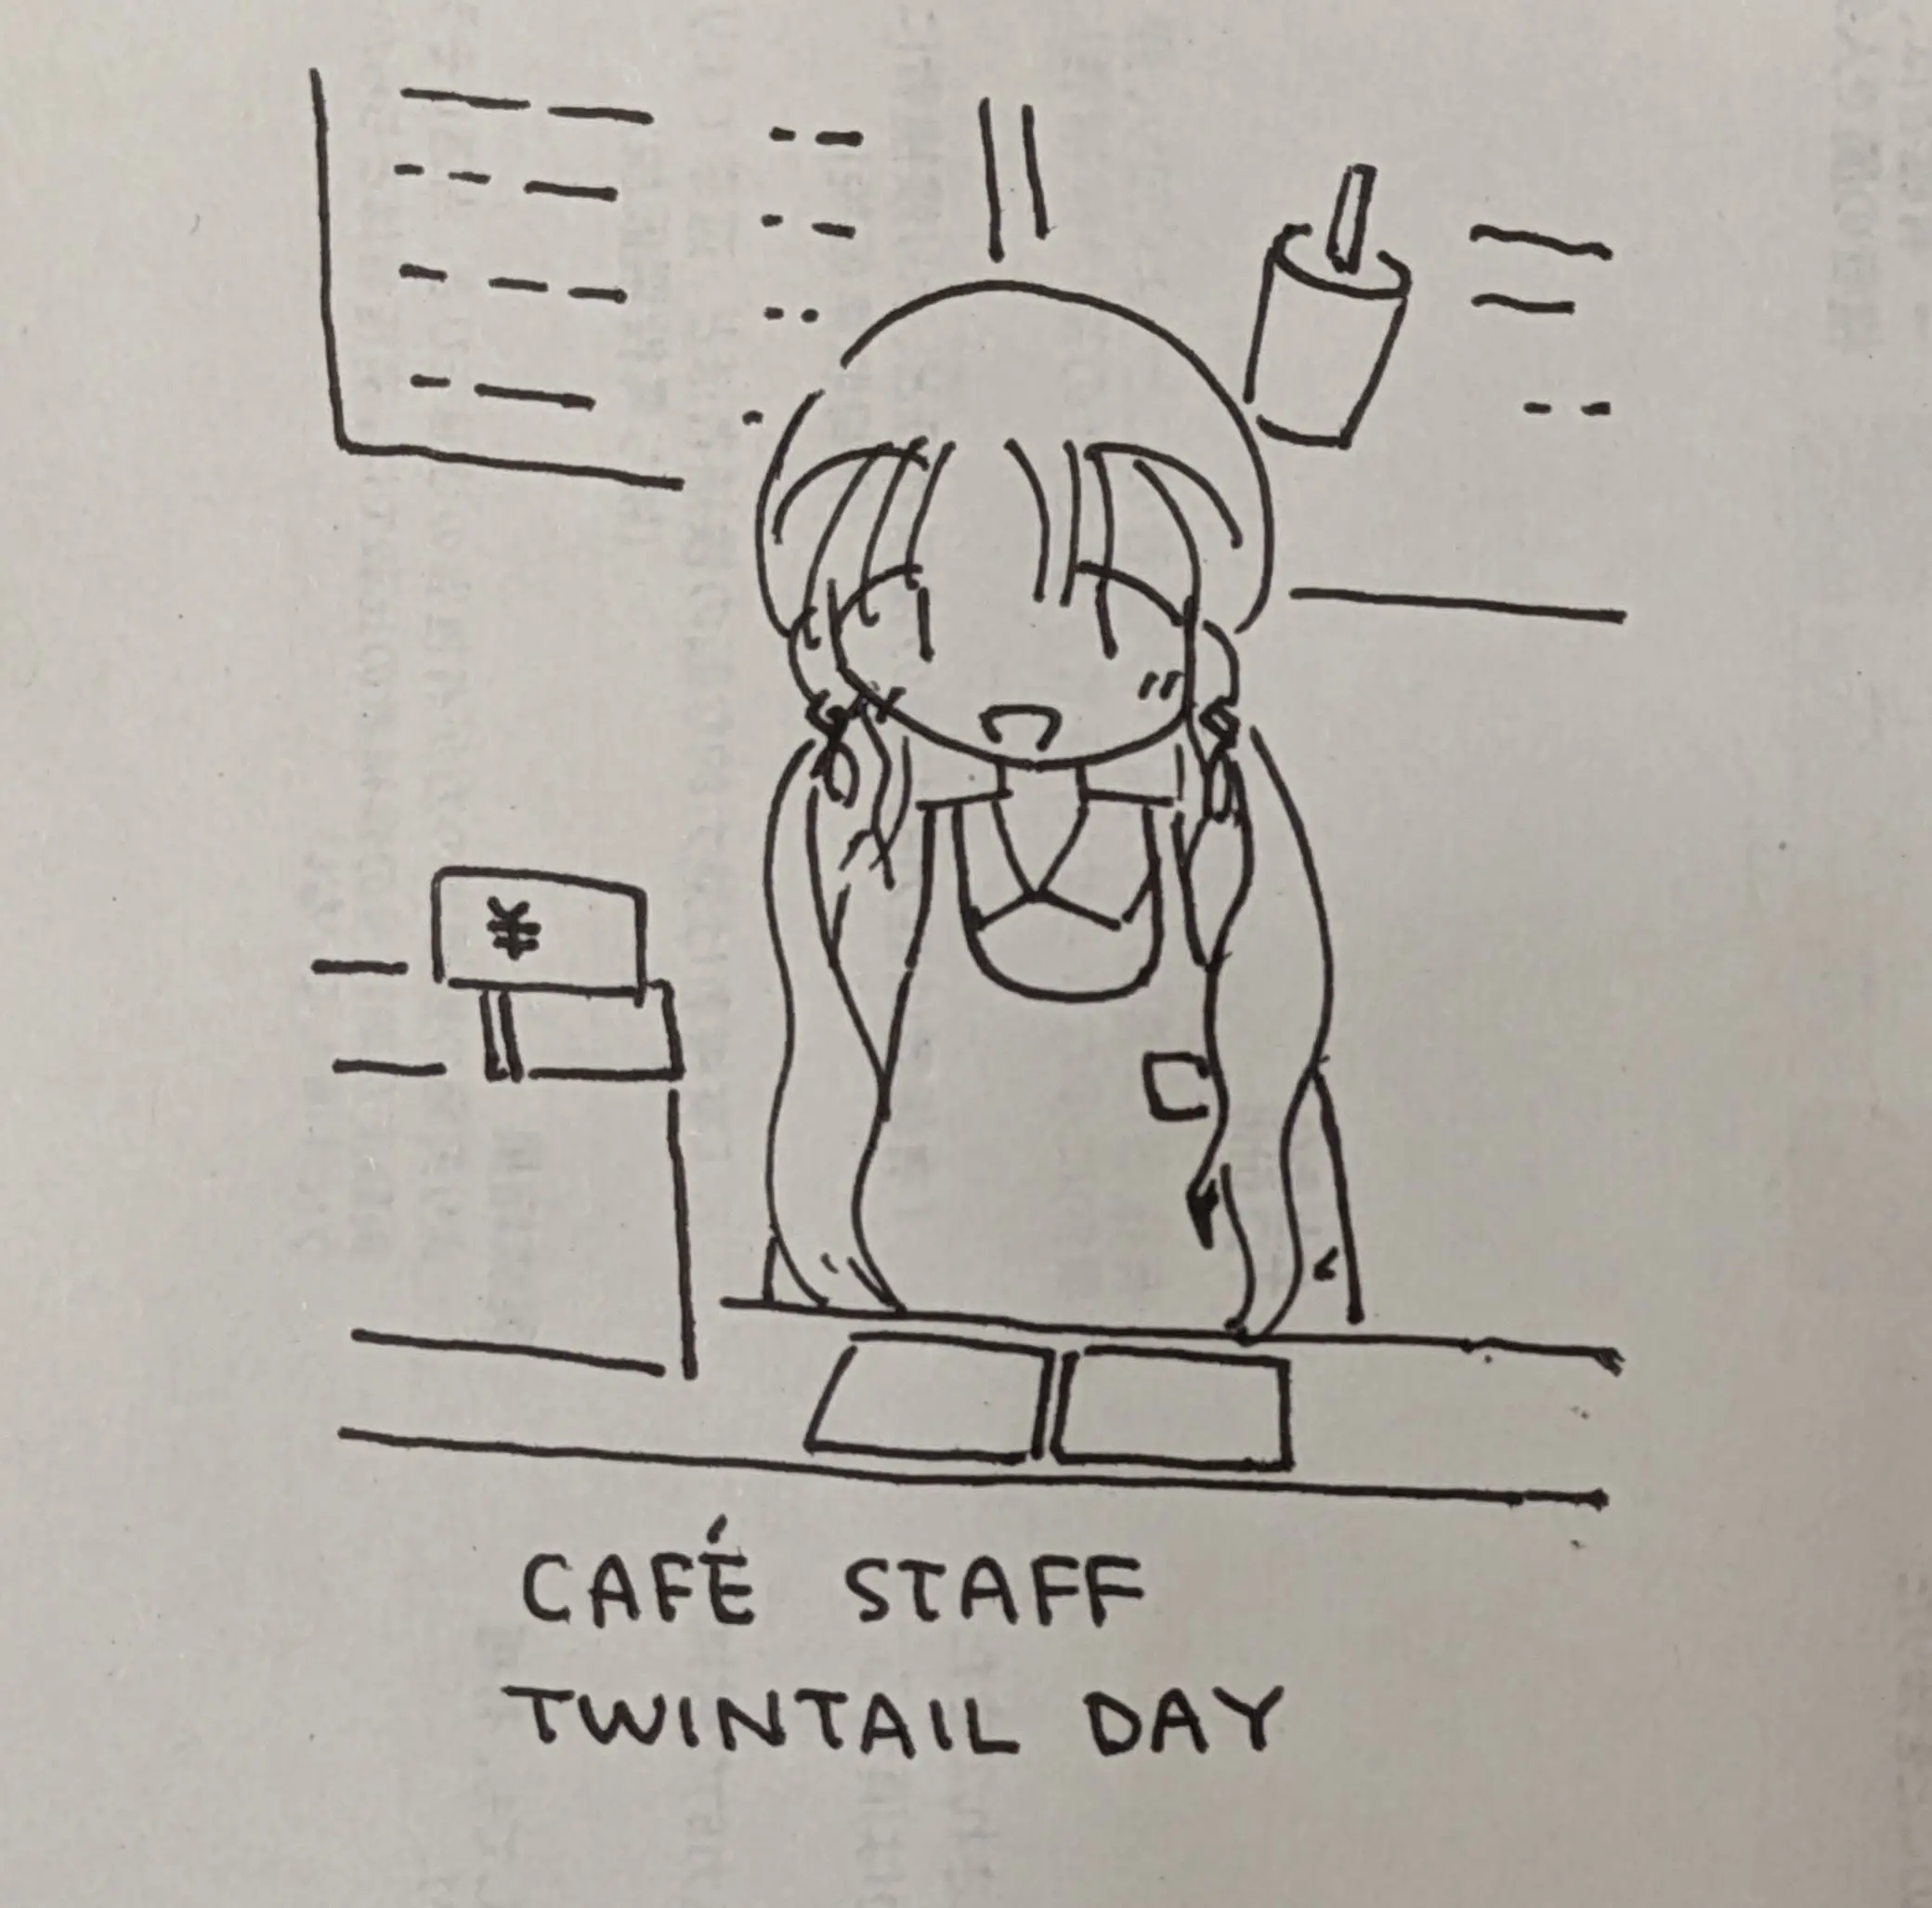 ¥
CAFÉ STAFF
TWINTAIL DAY